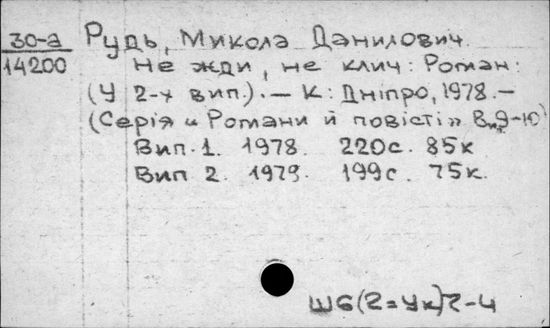 30-а
14200
Рудь, Микола Данилович.
Не жди, не клич: Роман:
(У 2-х вип.). — К: Дніпро, 1978. —
(Серія „Романи й повісті” Вид-во)
Вип. 1. 1978. 220с. 85к
Вип 2. 1979. 199с. 75к.
Ш6(2=Ук)7-4